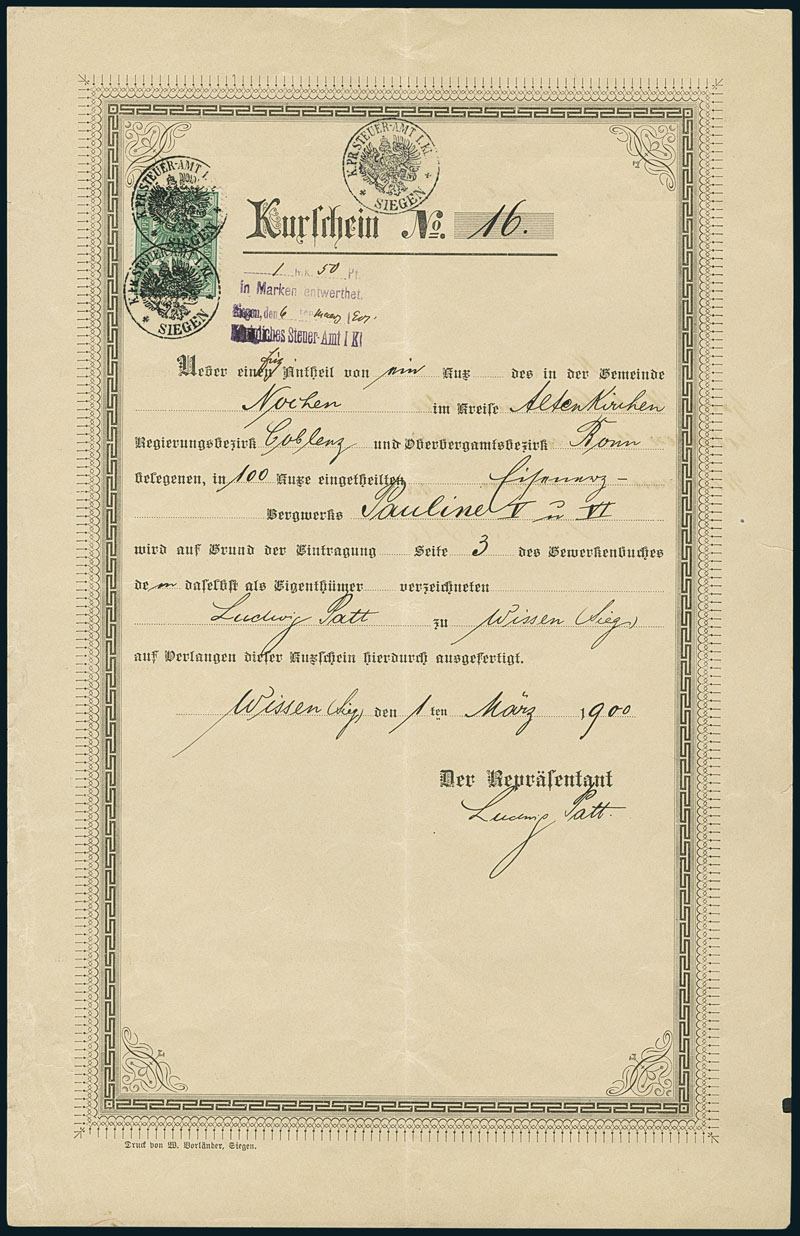 K. PR. STEUER-AMT I. Kl.
* SIEGEN *
K. PR. STEUER-AMT I.
SIEGEN
K. PR. STEUER-AMT I. Kl.
* SIEGEN *
Kuxschein No. 16.
1 Mk. 50 Pf.
in Marken entwerthet.
Siegen, den 6
Königliches Steuer-Amt I Kl
Ueber einen Antheil von ein Kux des in der Gemeinde
Nochen im Kreise Altenkirchen
Regierungsbezirk Coblenz und Oberbergamtsbezirk Bonn
belegenen, in 100 Kuxe eingetheilten Eisenerz-
Bergwerks Pauline V u VI
wird auf Grund der Eintragung Seite 3 des Gewerkenbuches
dem daselbst als Eigenthümer verzeichneten
Ludwig Patt zu Wissen (Sieg)
auf Verlangen dieser Kuxschein hierdurch ausgefertigt.
Wissen (Sieg) den 1ten März 1900
Der Repräsentant
Ludwig Patt.
Druck von W. Vorländer, Siegen.